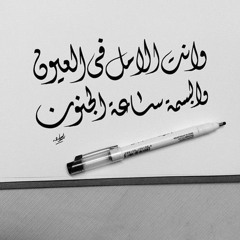 وانت الامل في العيون
والبسمة ساعة الجنون